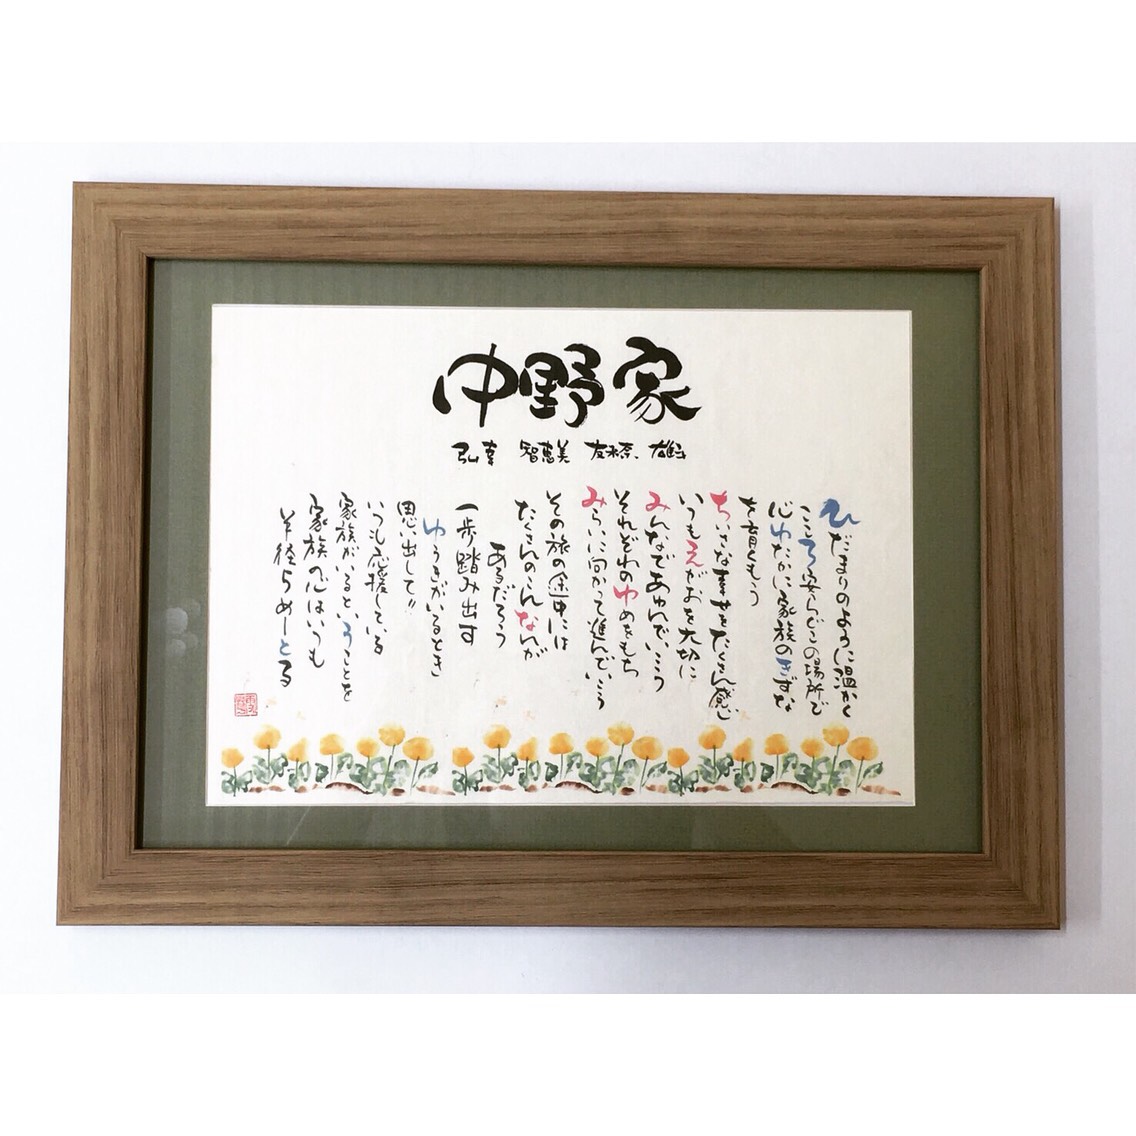 中野家
弘幸 智恵美 友永奈 雄斗
ひだまりのように温かく
こころ安らぐこの場所で
心ゆたかに家族のきずな
を育くもう
ちいさな幸せをたくさん感じ
いつもえがおを大切に
みんなであゆんでいこう
それぞれのゆめをもち
みらいに向かって進んでいこう
その旅の途中には
たくさんのこんなんが
あるだろう
一歩踏み出す
ゆうきがいるとき
思い出して!!
いつも応援している
家族がいるということを
家族の心はいつも
半径5めーとる